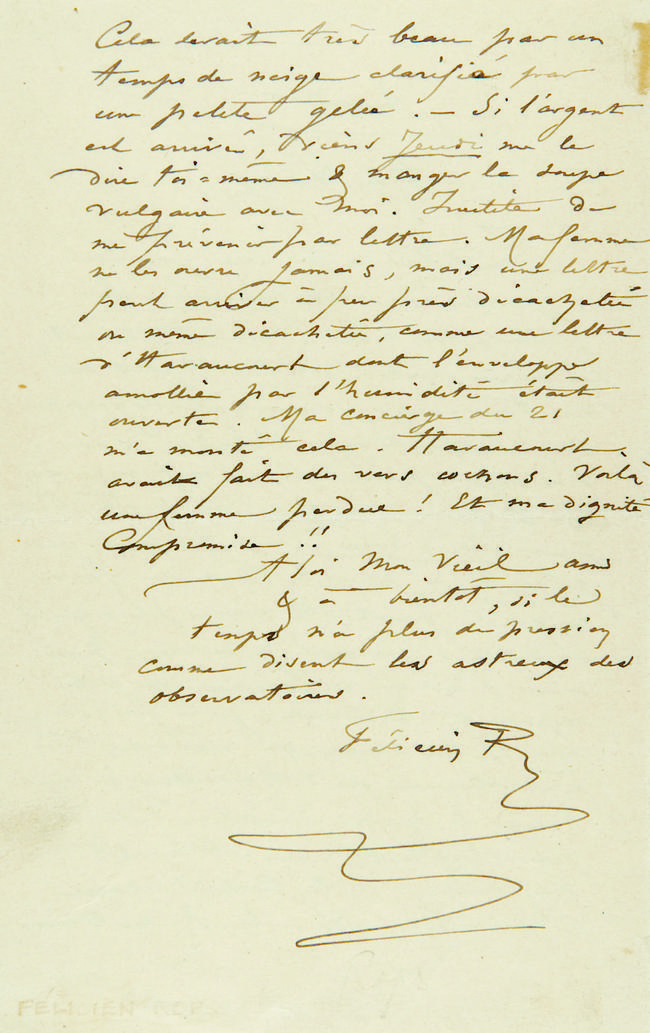 Cela serait très beau par un
temps de neige clarifié par
une petite gelée. – Si l'argent
est arrivé, viens Jeudi me le
dire toi=même & manger la soupe
vulgaire avec moi. Inutile de
me prévenir par lettre. Ma femme
ne les ouvre jamais, mais une lettre
peut arriver à peu près décachetée
ou même décachetée, comme une lettre
d'Haraucourt dont l'enveloppe
amollie par l'humidité était
ouverte. Ma concierge du 21
m'a monté cela. Haraucourt
avait fait des vers cochons. Voilà
une femme perdue! Et ma dignité
Compromise!!
A toi Mon Vieil ami
& à bientôt, si le
temps n'a plus de pression
comme disent les astreux des
observatoires.
Félicien R
FÉLICIEN ROPS